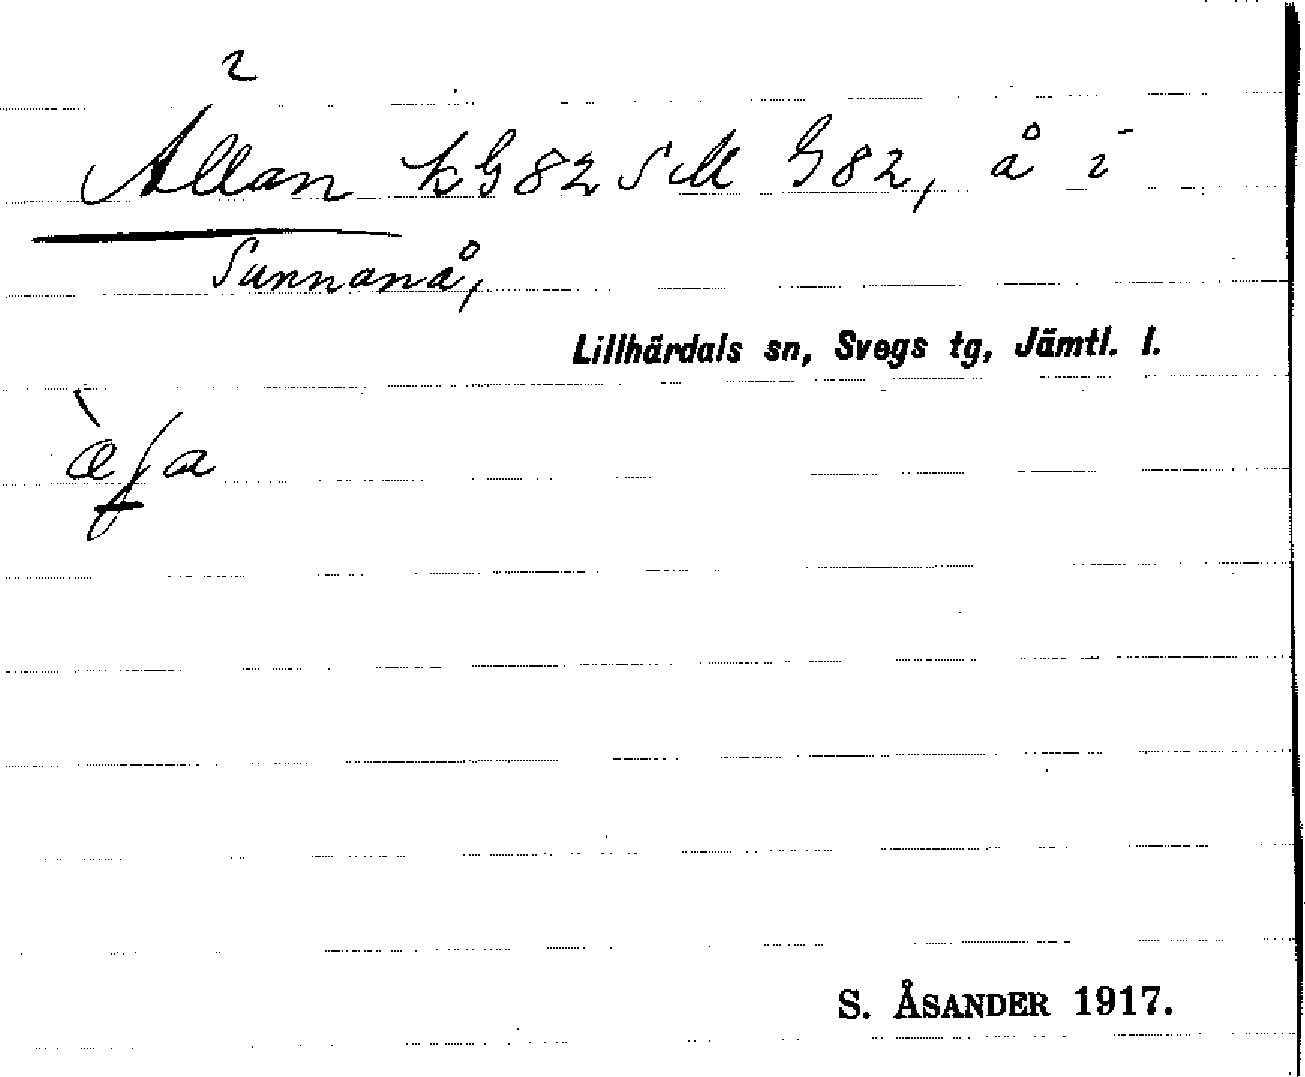 2
Ällan kG82 SM G82, å i
Sunnanå,
Lillhärdals sn, Svegs tg, Jämtl. l.
S. ÅSANDER 1917.